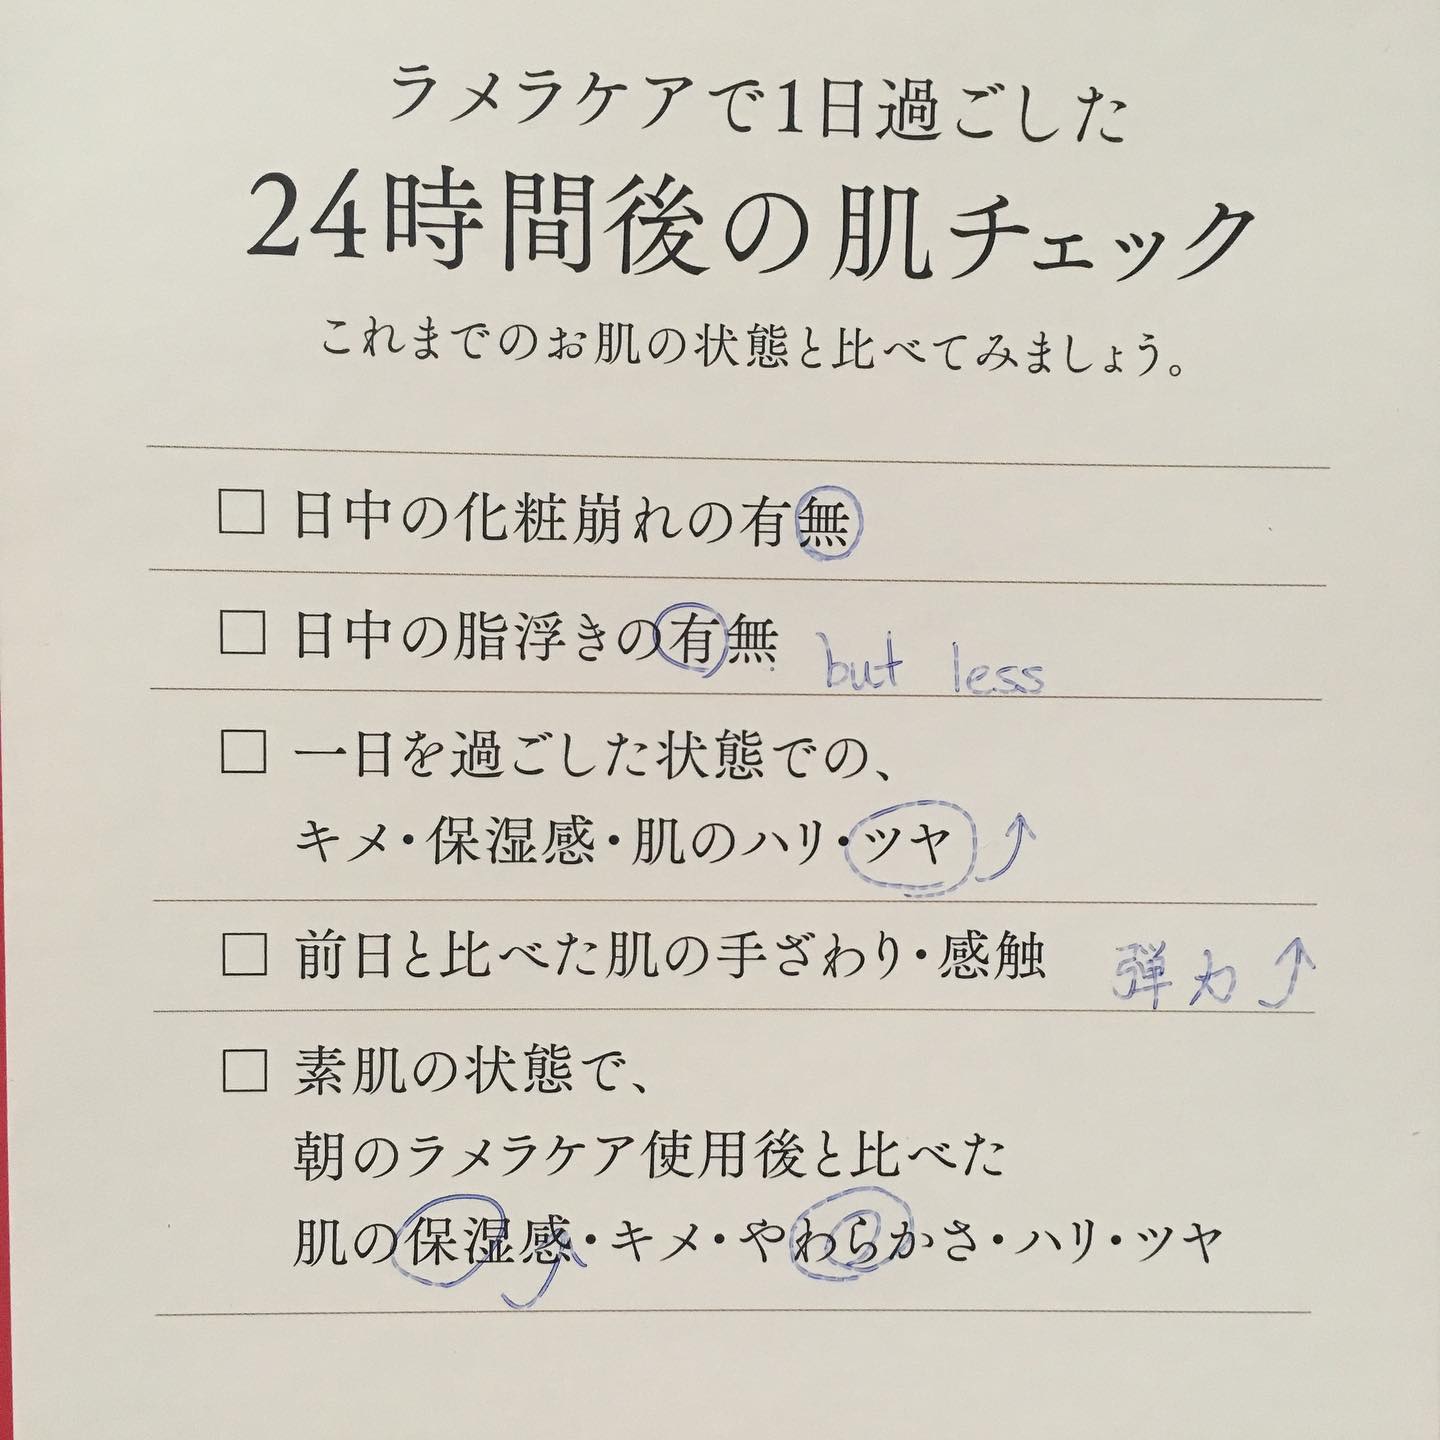 ラメラケアで1日過ごした
24時間後の肌チェック
これまでのお肌の状態と比べてみましょう。
□ 日中の化粧崩れの有無
□ 日中の脂浮きの有無 but less
□ 一日を過ごした状態での、
キメ・保湿感・肌のハリ・ツヤ ↑
□ 前日と比べた肌の手ざわり・感触 弾力 ↑
□ 素肌の状態で、
朝のラメラケア使用後と比べた
肌の保湿感・キメ・やわらかさ・ハリ・ツヤ